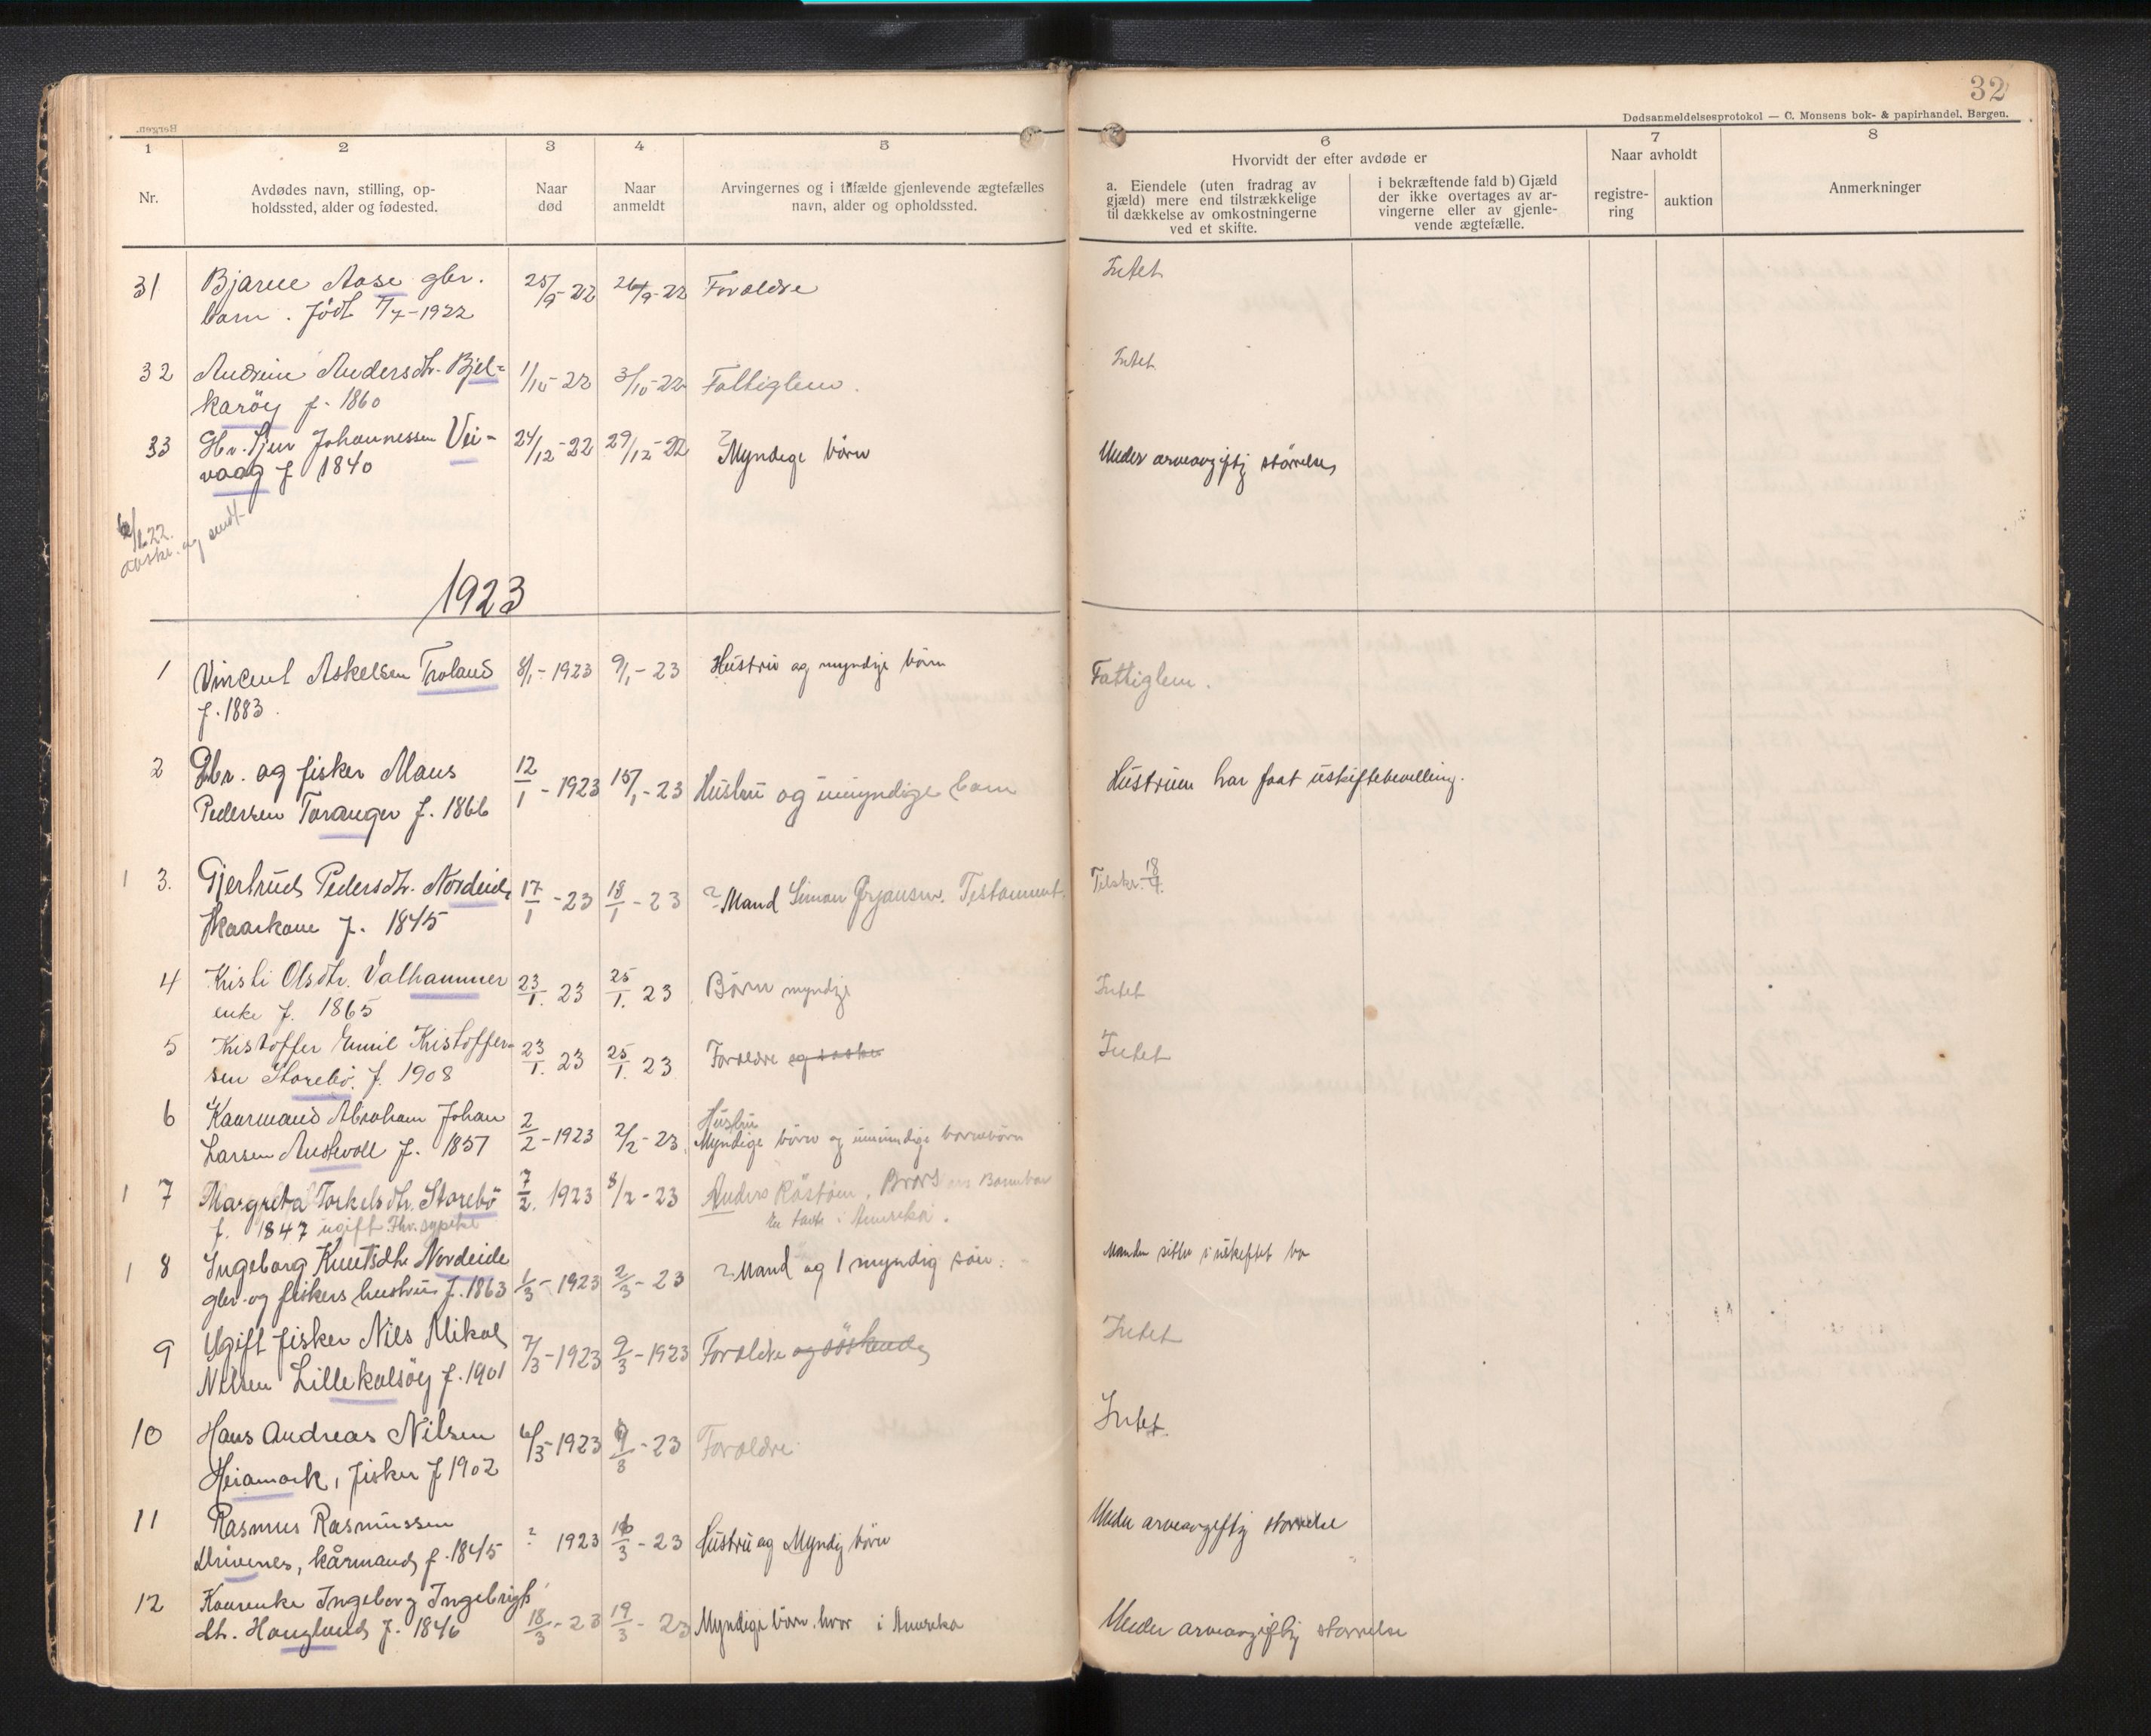 32
Dødsanmeldelsesprotokol — C. Monsens bok- & papirhandel, Bergen.
1 2 3 4 5 6 7 8
Nr.
Avdødes navn, stilling, op-
holdssted, alder og fødested.
Naar
død
Naar
anmeldt
Arvingernes og i tilfælde gjenlevende ægtefælles
navn, alder og opholdssted.
Hvorvidt der efter avdøde er
a. Eiendele (uten fradrag av
gjæld) mere end tilstrækkelige
til dækkelse av omkostningerne
ved et skifte.
i bekræftende fald b) Gjæld
der ikke overtages av ar-
vingerne eller av gjenle-
vende ægtefælle.
Naar avholdt
registre-
ring
auktion
Anmerkninger
31 Bjarne Aase gbr. 25/9-22 26/9-22 Forældre Intet
barn. født 7/7-1922
32 Andrine Andersdtr. Bjel- 1/10-22 3/10-22 Fattiglem. Intet
karöy f. 1860
33 Gbr. Sjur Johannessen Vei- 24/12-22 29/12-22 ? Myndige börn Under arveavgiftig störrelse
vaag f 1840
avskr. og sendt
1923
1 Vincent Askelsen Troland 8/1-1923 9/1-23 Hustru og myndige börn Fattiglem.
f. 1883.
2 Gbr. og fisker Mons 12/1-1923 15/1-23 Hustru og umyndige barn Hustruen har faat uskiftebevilling.
Pedersen Toranger f. 1866
1 3. Gjertrud Pedersdtr. Nordeide 17/1-23 18/1-23 ? Mand Simon Örjansen. Testament.
Kaarkone f. 1845
4 Kristi Olsdtr. Valhammer 23/1. 23 25/1. 23 Börn myndige Intet
enke f. 1865
5 Kristoffer Emil Kristoffer- 23/1. 23 25/1. 23 Forældre Intet
sen Storebö. f. 1908
6 Kaarmand Abraham Johan 2/2-1923 2/2-23 Hustru
Larsen Austevoll f. 1857 Myndige börn og umyndige barnebörn
1 7 Margreta Torkelsdtr. Storebö 7/2. 1923 8/2-23 Anders
f. 1847 ugift i Amerika.
1 8 Ingeborg Knutsdtr Nordeide 1/3-1923 2/3-23 ? Mand og 1 myndig sön. Manden sitter i uskiftet bo
gbr. og fiskers hustru f. 1863
9 Ugift fisker Nils Mikal 7/3-1923 9/3-1923 Forældre og söskende Intet
Nilsen Lillekalsöy f. 1901
10 Hans Andreas Nilsen 6/3-1923 9/3-23 Forældre Intet.
Heiamark, fisker f 1902
11 Rasmus Rasmussen ? 1923 16/3-23 Hustru og Myndig börn Under arveavgiftig störrelse
Drivenes, kårmand f. 1845
12 Kaarenke Ingeborg Ingebrigts 18/3-23 19/3-23 Myndige börn. hvor i Amerika Under arveavgiftig störrelse
dt. Hauglands f. 1846